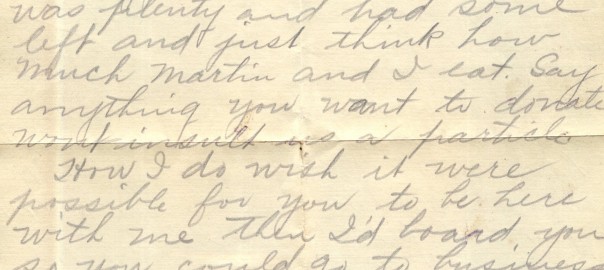 was plenty and had some
left and just think how
much Martin and I eat. Say
anything you want to donate
wont insult us a particle
How I do wish it were
possible for you to be here
with me then I'd board you
so you could go to business